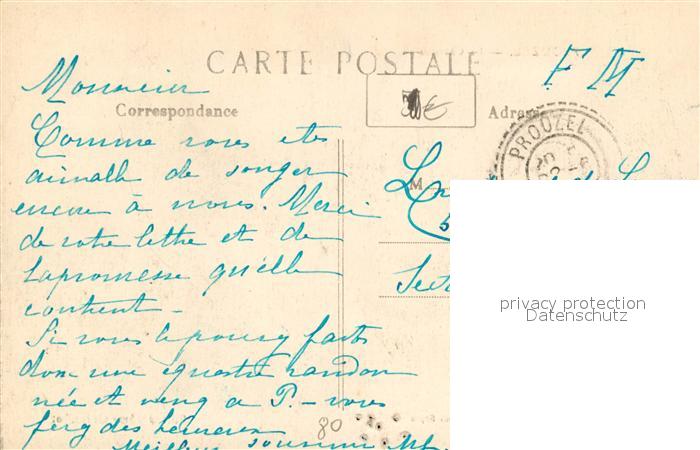 CARTE POSTALE
F M
Monsieur
Correspondance
Adresse
PROUZEL
Comme vous etes
aimable de songer
encore à nous. Merci
M
de votre lettre et de
la promesse qu'elle
contient -
Sect
Si vous le pouvez faites
donc une équestre randon
née et venez a P. - vous
ferez des heureux
80
Meilleur souvenir
privacy protection
Datenschutz